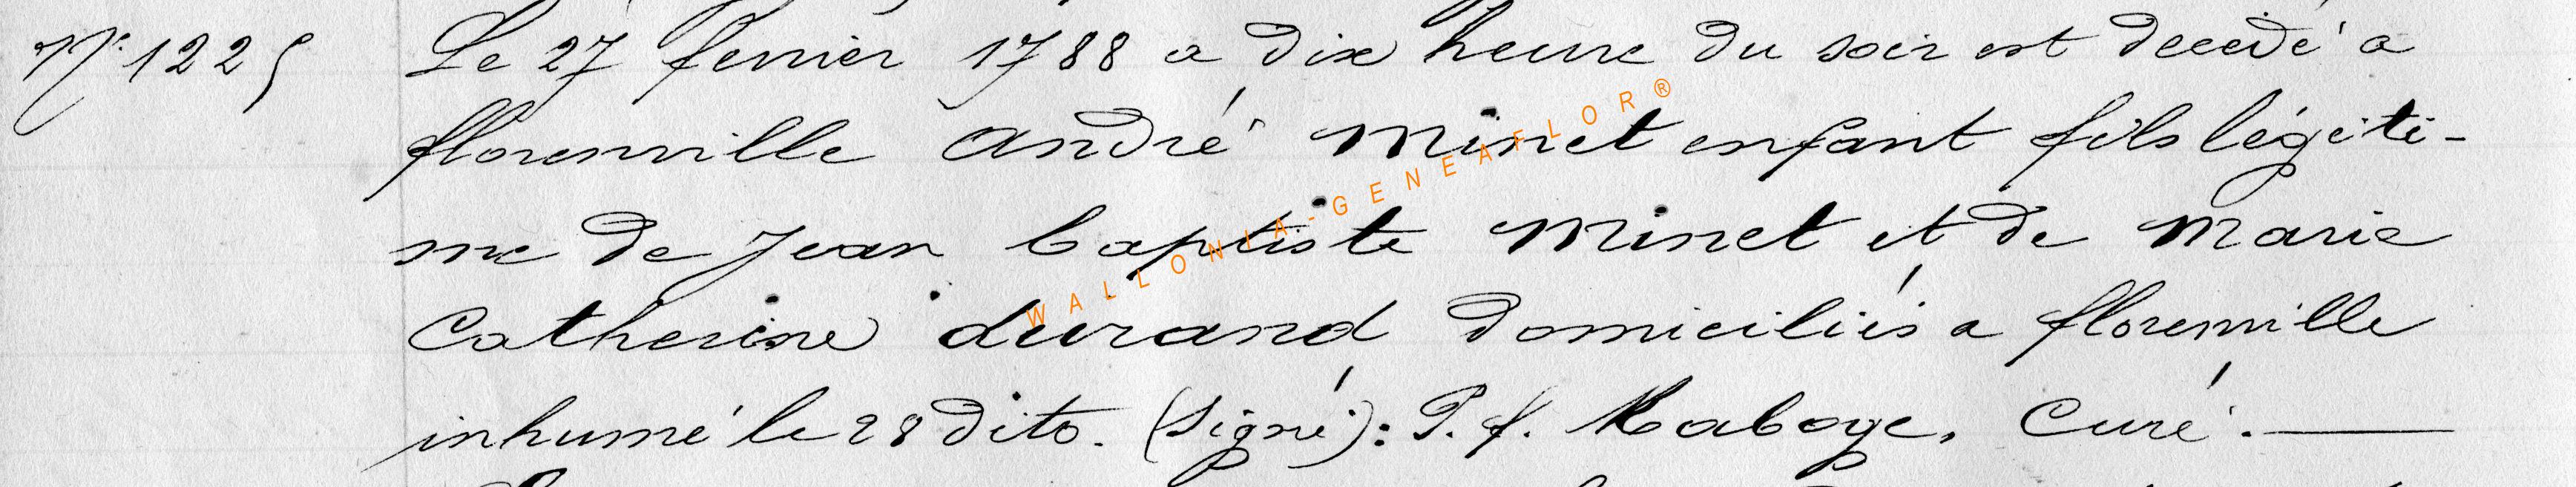 N° 1225 Le 27 fevrier 1788 a dix heure du soir est decedé a
florenville andré Minet enfant fils légiti-
me de Jean baptiste Minet et de Marie
Catherine durand domiciliés a florenville
inhumé le 28 dito. (Signé): P. f. Raboge, Curé. —
WALLONIA-GENEAFLOR®